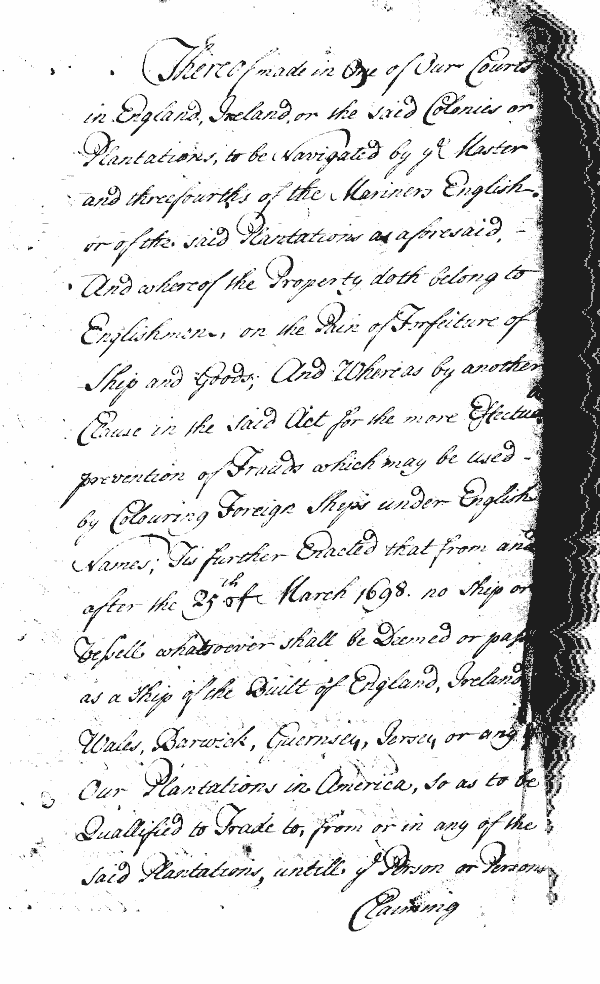 Thereof made in One of Our Courts
in England, Ireland, or the said Colonies or
Plantations, to be Navigated by ye Master
and threefourths of the Mariners English.
or of the said Plantations as aforesaid, -
And whereof the Property doth belong to
Englishmen, on the Pain of Forfeiture of
Ship and Goods; And Whereas by another
Clause in the said Act for the more Effectual
prevention of Frauds which may be used -
by Colouring Foreign Ships under English
Names; Tis further Enacted that from and
after the 25th of March 1698. no Ship or
Vessell whatsoever shall be Deemed or pass
as a Ship of the Built of England, Ireland
Wales, Barwick, Guernsey, Jersey or any
Our Plantations in America, so as to be
Quallified to Trade to, from or in any of the
said Plantations, untill ye Person or Persons
Claiming